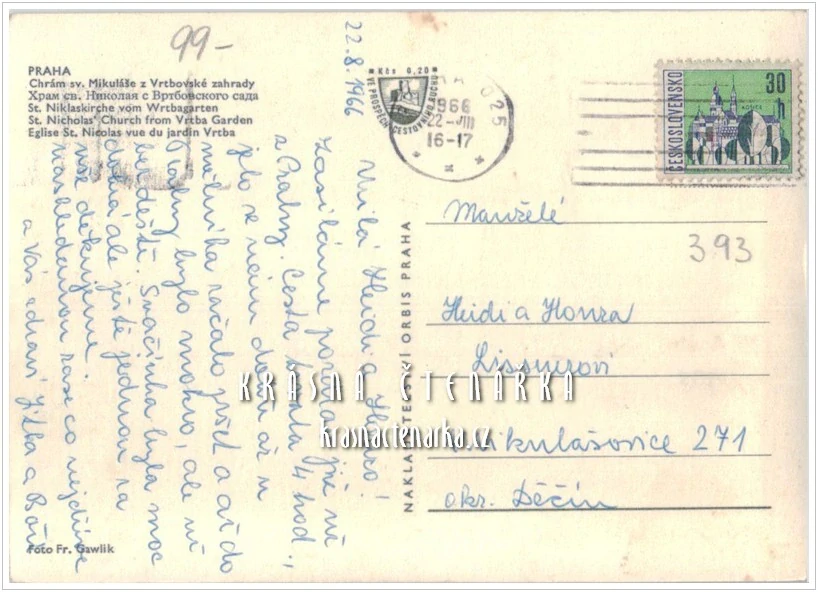 99-
22.8.1966
PRAHA
Chrám sv. Mikuláše z Vrtbovské zahrady
Храм св. Николая с Вртбовского сада
St. Niklaskirche vom Wrtbagarten
St. Nicholas' Church from Vrtba Garden
Eglise St. Nicolas vue du jardin Vrtba
Kčs 0,20
VE PROSPĚCH CESTOVNÍHO RUCHU
025
1966
22-VIII
16-17
ČESKOSLOVENSKO
30
h
KOŠICE
Milá Heidi a Honzo!
Zasíláme pozdrav již ni
z Prahy. Cesta trvala 4 hod.,
jelo se nám dobře až u
mělníka začalo pršet a až do
Prahy bylo mokro, ale ni
nedešti. Svačinka byla moc
dobrá ale ještě jednou za
vše děkujeme.
naschledanou zase co nejdříve
a Vás zdraví Jitka a
Manželé
393
Heidi a Honza
Lissnerovi
Mikulášovice 271
okr. Děčín
NAKLADATELSTVÍ ORBIS PRAHA
KRÁSNÁ ČTENÁŘKA
krasnactenarka.cz
Foto Fr. Gawlik